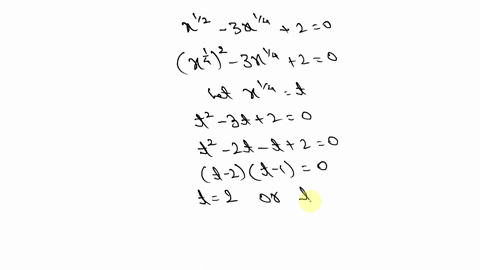 x^{1/2} - 3x^{1/4} + 2 = 0
(x^{1/4})^2 - 3x^{1/4} + 2 = 0
let x^{1/4} = t
t^2 - 3t + 2 = 0
t^2 - 2t - t + 2 = 0
(t-2)(t-1) = 0
t = 2 or t